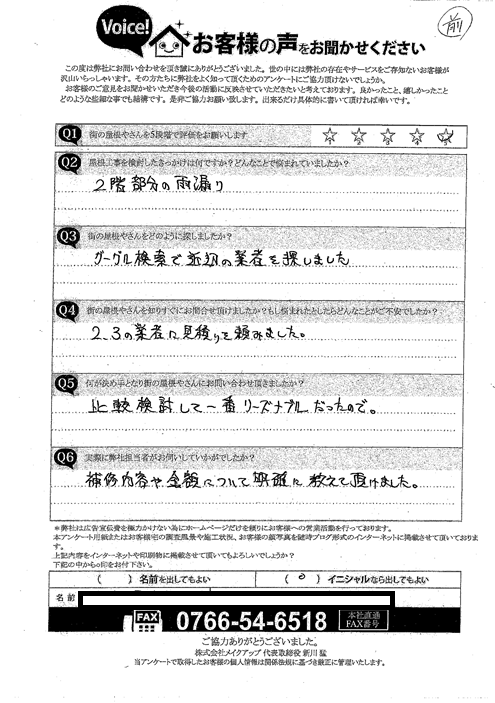 前
Voice!
お客様の声をお聞かせください
この度は弊社にお問い合わせを頂き誠にありがとうございました。世の中には弊社の存在やサービスをご存知ないお客様が
沢山いらっしゃいます。その方たちに弊社をよく知って頂くためのアンケートにご協力頂けないでしょうか。
お客様のご意見をお聞かせいただき今後の活動に反映させていただきたいと考えております。良かったこと、嬉しかったこと
どのような些細な事でも結構です。是非ご協力お願い致します。出来るだけ具体的に書いて頂ければ幸いです。
Q1 街の屋根やさんを5段階で評価をお願いします
Q2 屋根工事を検討したきっかけは何ですか？どんなことで悩まれていましたか？
2階部分の雨漏り
Q3 街の屋根やさんをどのように探しましたか？
グーグル検索で近辺の業者を探しました
Q4 街の屋根やさんを知りすぐにお問合せ頂けましたか？もし悩まれたとしたらどんなことがご不安でしたか？
2、3の業者に見積りを頼みました。
Q5 何が決め手となり街の屋根やさんにお問い合わせ頂きましたか？
比較検討して一番リーズナブルだったので。
Q6 実際に弊社担当者がお伺いしていかがでしたか？
補修内容や金額について明確に教えて頂けました。
＊弊社は広告宣伝費を極力かけない為にホームページだけを頼りにお客様への営業活動を行っております。
本アンケート用紙またはお客様宅の調査風景や施工状況、お客様の顔写真を随時ブログ形式のインターネットに掲載させて頂いております。
上記内容をインターネットや印刷物に掲載させて頂いてもよろしいでしょうか？
下記の中から○印をお付け下さい。
（　）名前を出してもよい （○）イニシャルなら出してもよい
名前
FAX 0766-54-6518 本社直通 FAX番号
ご協力ありがとうございました。
株式会社メイクアップ 代表取締役 新川 猛
当アンケートで取得したお客様の個人情報は関係法規に基づき厳正に管理いたします。